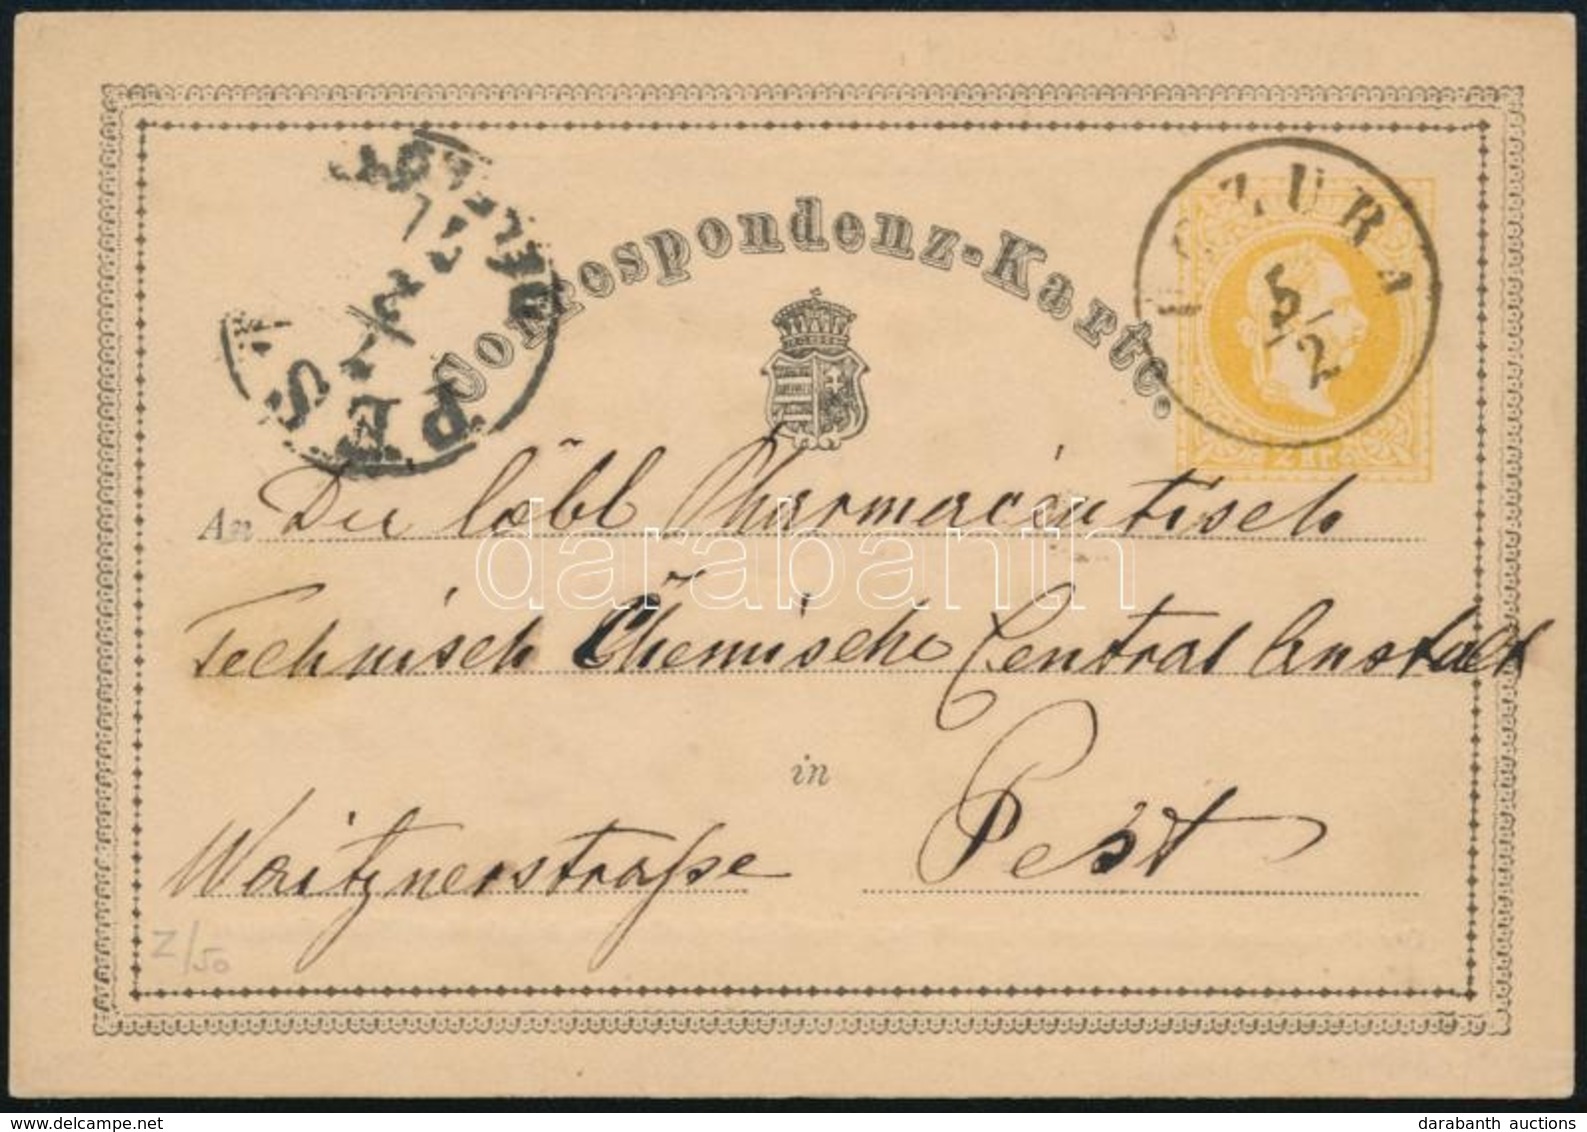 Correspondenz-Karte.
PEST
KOZURA
5/2
2 kr.
An Die löbl Pharmaceutisch
Technisch Chemische Central Anstalt
in
Waitznerstraße Pest
Z/50
darabanth
darabanth auctions